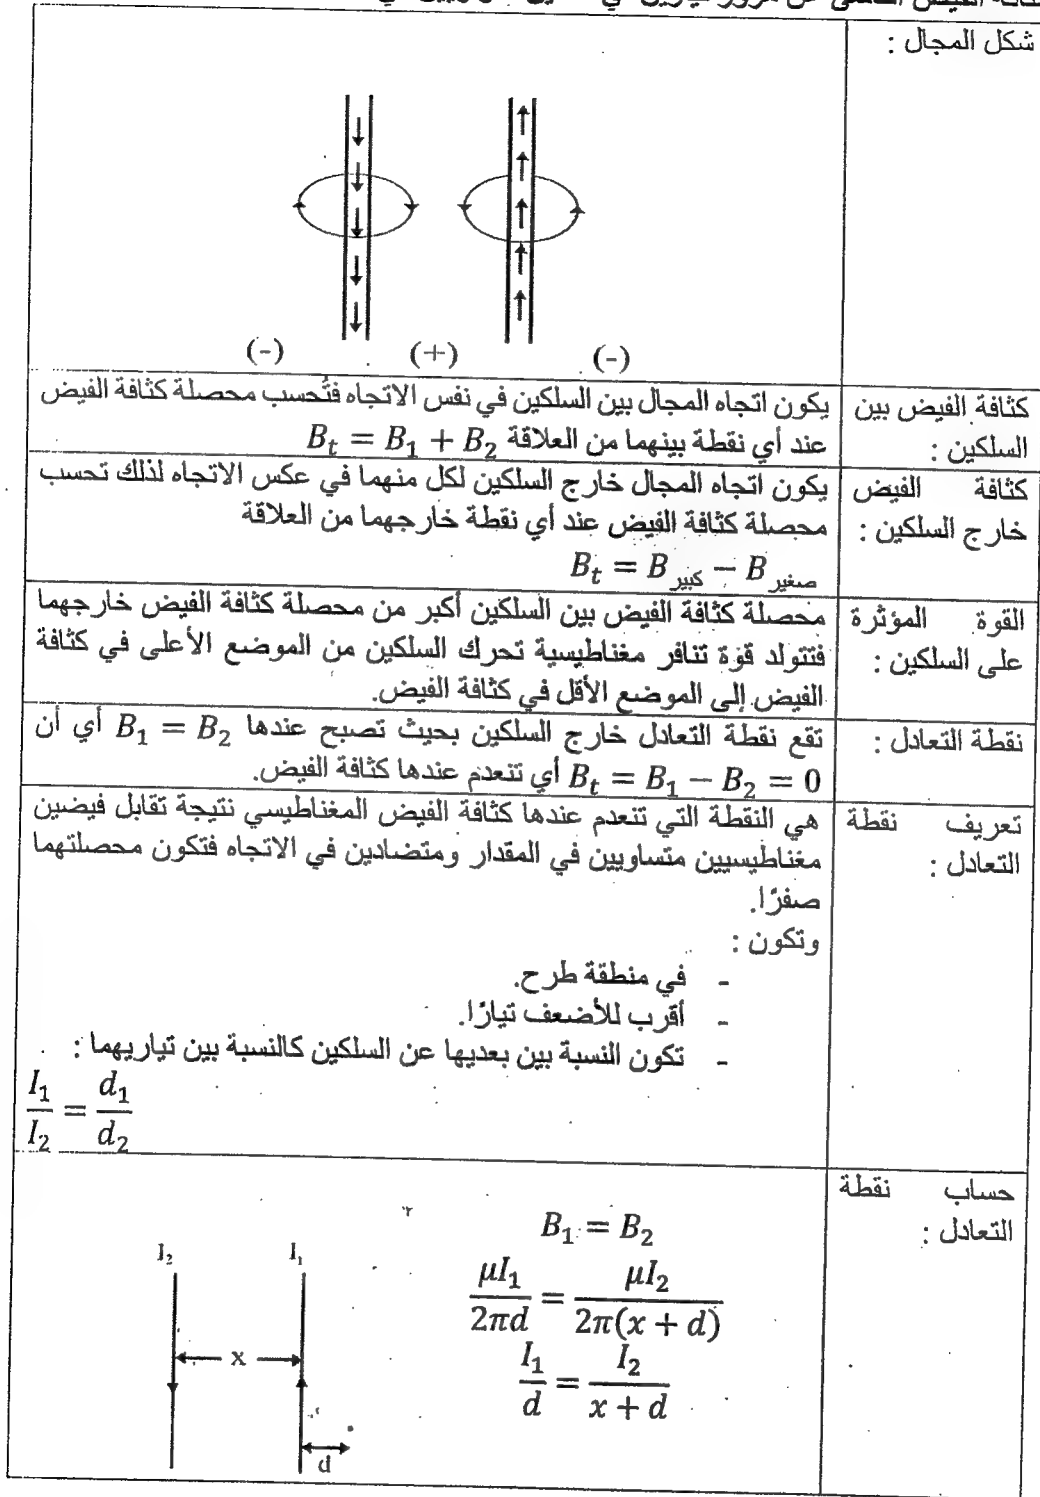 شكل المجال :
(-) (+) (-)
كثافة الفيض بين السلكين :
يكون اتجاه المجال بين السلكين في نفس الاتجاه فتُحسب محصلة كثافة الفيض
عند أي نقطة بينهما من العلاقة B₁ + B₂ = Bₜ
كثافة الفيض خارج السلكين :
يكون اتجاه المجال خارج السلكين لكل منهما في عكس الاتجاه لذلك تحسب
محصلة كثافة الفيض عند أي نقطة خارجهما من العلاقة
Bₜ = B كبير − B صغير
القوة المؤثرة على السلكين :
محصلة كثافة الفيض بين السلكين أكبر من محصلة كثافة الفيض خارجهما
فتتولد قوة تنافر مغناطيسية تحرك السلكين من الموضع الأعلى في كثافة
الفيض إلى الموضع الأقل في كثافة الفيض.
نقطة التعادل :
تقع نقطة التعادل خارج السلكين بحيث تصبح عندها B₁ = B₂ أي أن
Bₜ = B₁ − B₂ = 0 أي تنعدم عندها كثافة الفيض.
تعريف نقطة التعادل :
هي النقطة التي تنعدم عندها كثافة الفيض المغناطيسي نتيجة تقابل فيضين
مغناطيسيين متساويين في المقدار ومتضادين في الاتجاه فتكون محصلتهما
صفرًا.
وتكون :
- في منطقة طرح.
- أقرب للأضعف تيارًا.
- تكون النسبة بين بعديها عن السلكين كالنسبة بين تياريهما :
I₁/I₂ = d₁/d₂
حساب نقطة التعادل :
B₁ = B₂
μI₁/2πd = μI₂/2π(x + d)
I₁/d = I₂/x + d
I₂ I₁
x
d